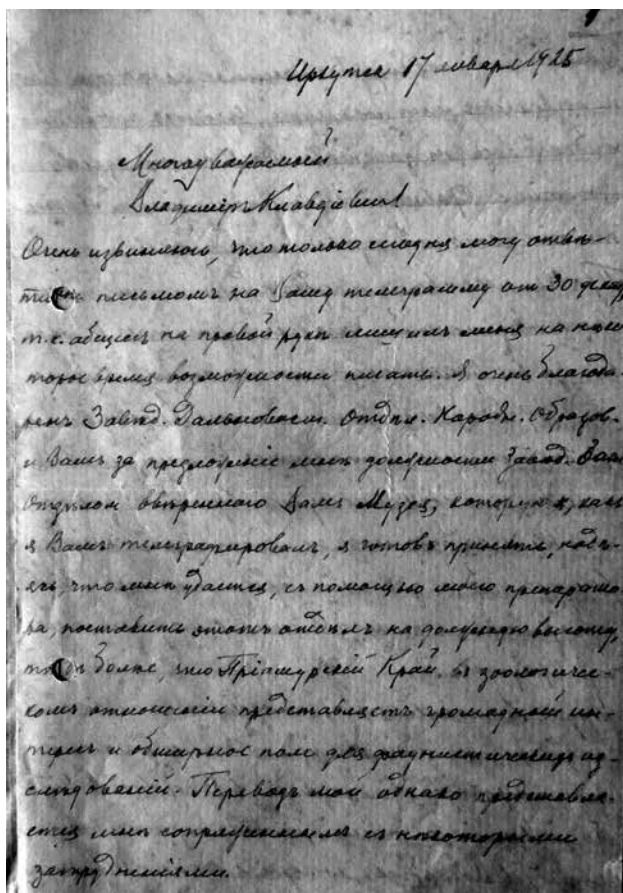 Иркутск 17 января 1925
Многоуважаемый
Владимиръ Клавдіевич!
Очень извиняюсь, что только сегодня могу отвѣ-
тить письмомъ на Вашу телеграмму от 30 декабр
т.к. абцесс на правой рукѣ лишилъ меня на нѣко
торое время возможности писать. Я очень благода-
ренъ Завѣд. Дальневост. Отдѣл. Народн. Образов.
и Вамъ за предложеніе мнѣ должности Завѣд. Зоол
Отдѣлом ввѣренного Вамъ Музея, которую я, какъ
я Вамъ телеграфировалъ, я готовъ принять, надѣ-
ясь, что мнѣ удастся, съ помощью моего препарато
ра, поставить этотъ отдѣлъ на должную высоту,
тѣмъ болѣе, что Пріамурскій Край въ зоологиче-
комъ отношеніи представляетъ громадный ин-
тересъ и обширное поле для фаунистическихъ из-
слѣдованій. Переводъ мой однако представля-
ется мнѣ сопряженнымъ съ нѣкоторыми
затрудненіями.